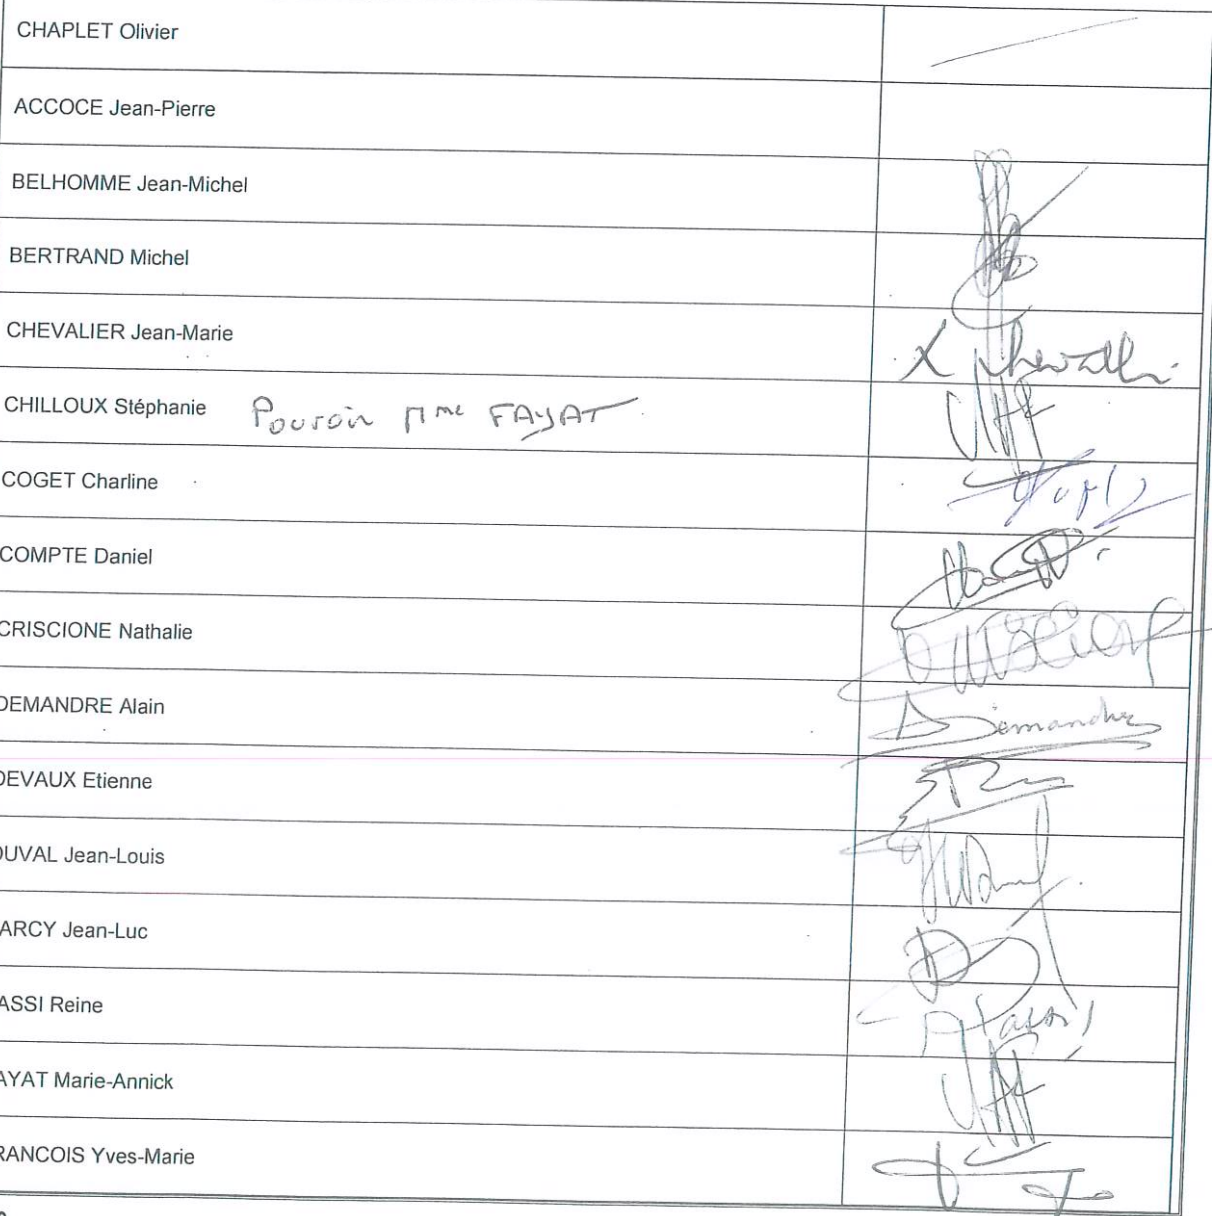 CHAPLET Olivier
ACCOCE Jean-Pierre
BELHOMME Jean-Michel
BERTRAND Michel
CHEVALIER Jean-Marie
CHILLOUX Stéphanie Pouvoir Mme FAYAT
COGET Charline
COMPTE Daniel
CRISCIONE Nathalie
DEMANDRE Alain Demandre
DEVAUX Etienne
DUVAL Jean-Louis
ARCY Jean-Luc
ASSI Reine
AYAT Marie-Annick
RANCOIS Yves-Marie